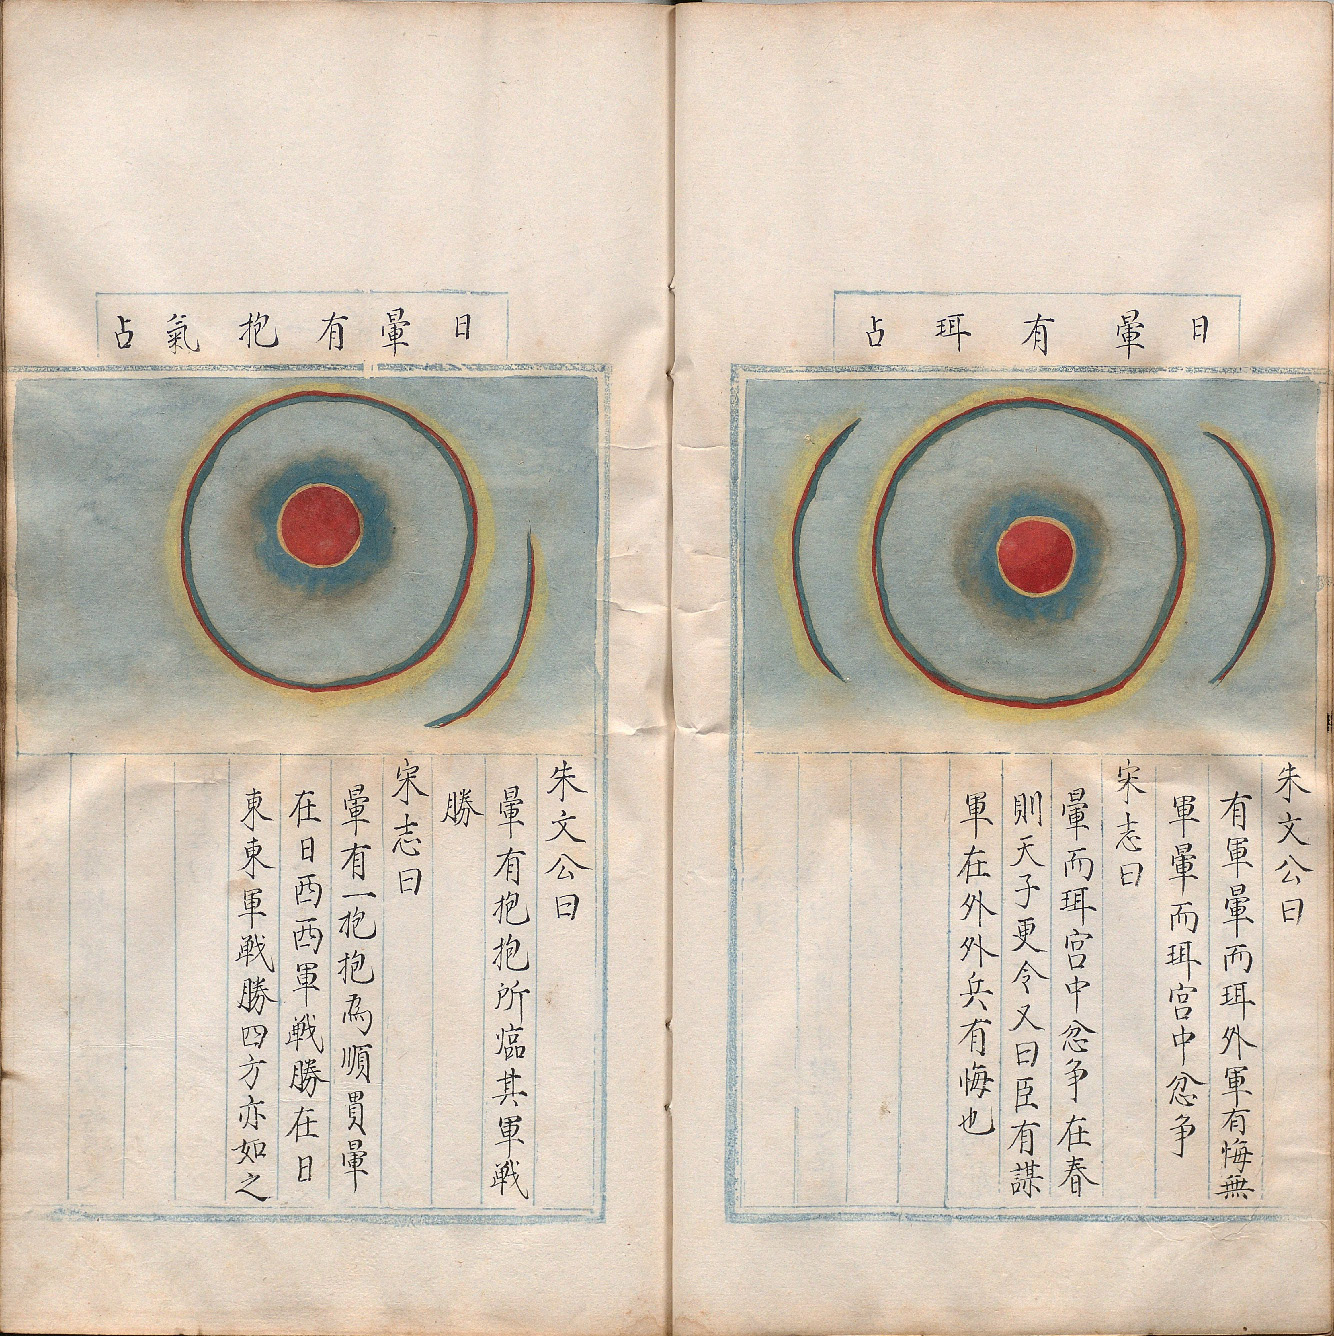 日暈有珥占
朱文公曰
有軍暈而珥外軍有悔無
軍暈而珥宮中忿争
宋志曰
暈而珥宮中忿争在春
則天子更令又曰臣有謀
軍在外外兵有悔也
日暈有抱氣占
朱文公曰
暈有抱抱所臨其軍戦
勝
宋志曰
暈有一抱抱為順貫暈
在日西西軍戦勝在日
東東軍戦勝四方亦如之